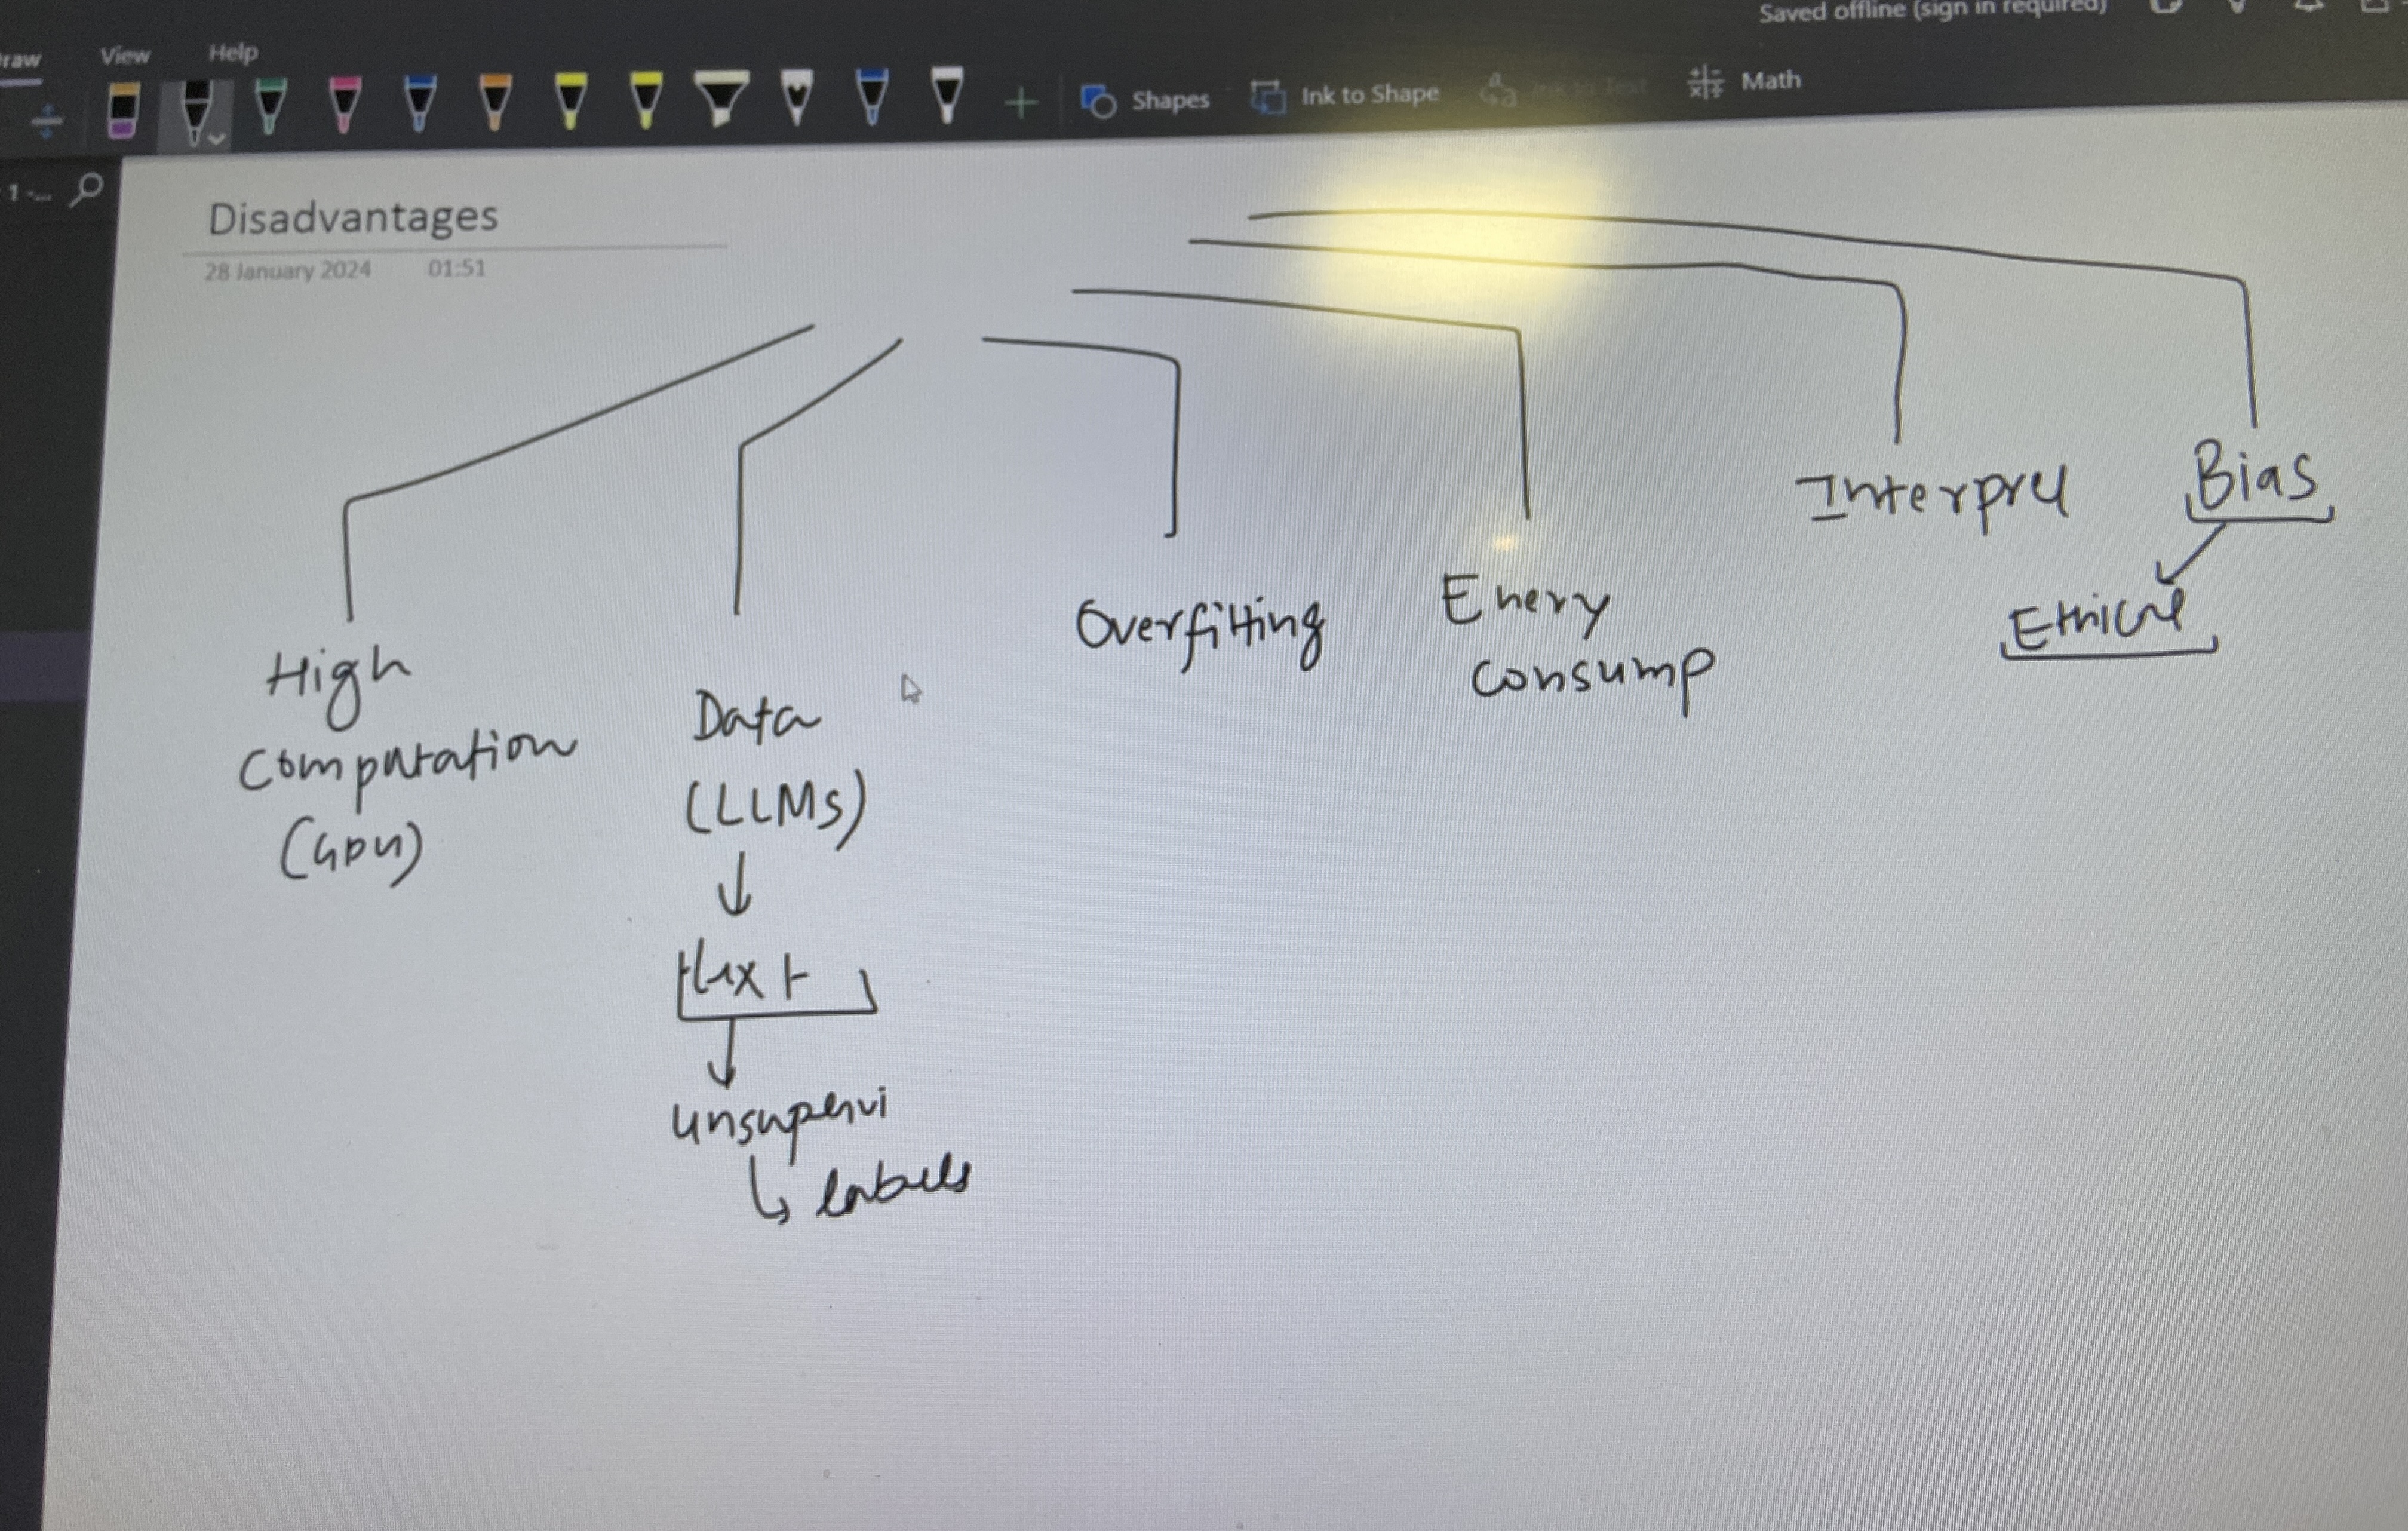 Saved offline (sign in required)
raw View Help
Shapes Ink to Shape Ink to Text Math
1 -...
Disadvantages
28 January 2024 01:51
High
Computation
(GPU)
Data
(LLMs)
text
unsupervi
labels
Overfitting
Enery
consump
Interpret
Bias
Ethical